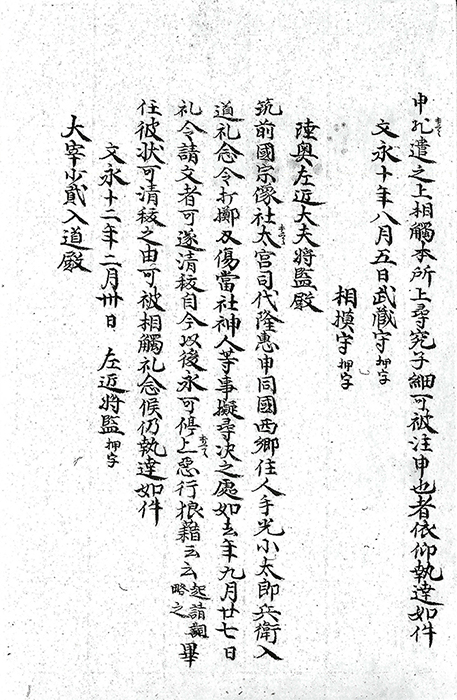 申孔遣之上相觸本所上尋究子細可被注申也者依仰執達如件
文永十年八月五日武藏守押字
相摸守押字
陸奥左近大夫將監殿
筑前國宗像社太官司代隆惠申同國西鄉住人手光小太郎兵衛入
道礼念令打擲刃傷當社神人等事擬尋决之處如去年九月廿七日
礼念請文者可遂清秡自今以後永可停止惡行狼藉云云起請詞略之畢
任彼狀可清秡之由可被相觸礼念候仍執達如件
文永十二年二月卅日 左近將監押字
大宰少貳入道殿